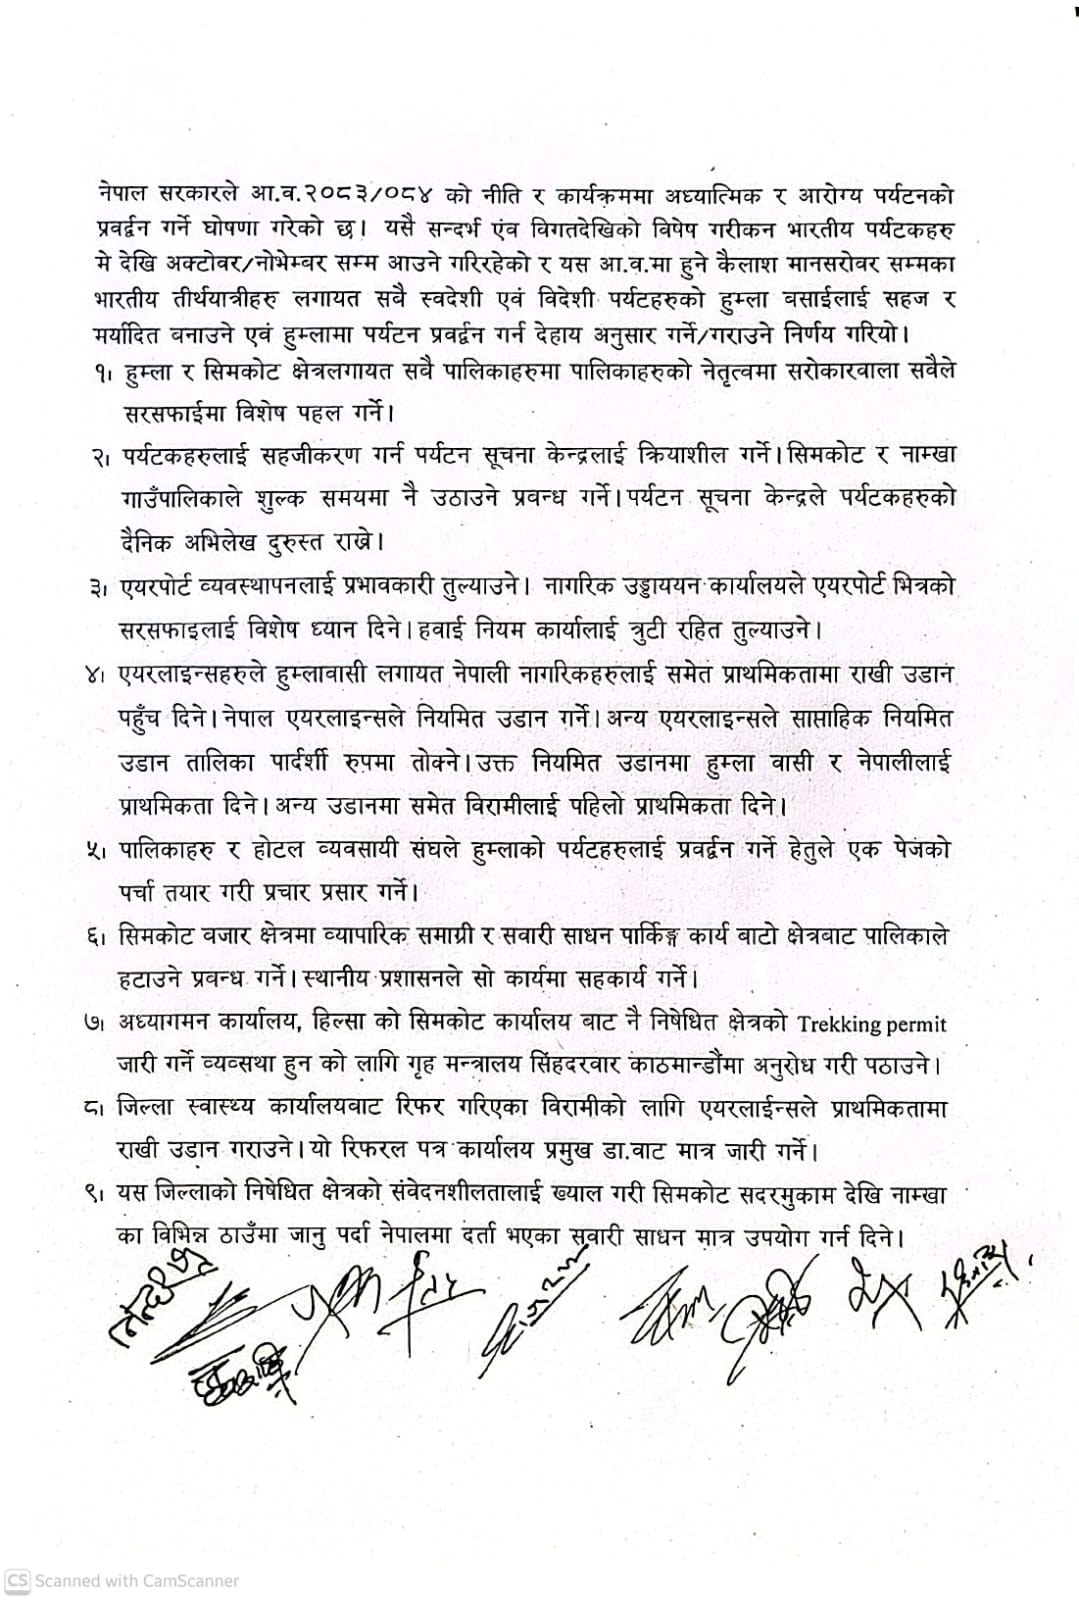 नेपाल सरकारले आ.व.२०८३/०८४ को नीति र कार्यक्रममा अध्यात्मिक र आरोग्य पर्यटनको
प्रवर्द्वन गर्ने घोषणा गरेको छ। यसै सन्दर्भ एंव विगतदेखिको विषेष गरीकन भारतीय पर्यटकहरु
मे देखि अक्टोवर/नोभेम्बर सम्म आउने गरिरहेको र यस आ.व.मा हुने कैलाश मानसरोवर सम्मका
भारतीय तीर्थयात्रीहरु लगायत सवै स्वदेशी एवं विदेशी पर्यटहरुको हुम्ला वसाईलाई सहज र
मर्यादित वनाउने एवं हुम्लामा पर्यटन प्रवर्द्वन गर्न देहाय अनुसार गर्ने/गराउने निर्णय गरियो।
१। हुम्ला र सिमकोट क्षेत्रलगायत सवै पालिकाहरुमा पालिकाहरुको नेतृत्वमा सरोकारवाला सवैले
सरसफाईमा विशेष पहल गर्ने।
२। पर्यटकहरुलाई सहजीकरण गर्न पर्यटन सूचना केन्द्रलाई क्रियाशील गर्ने। सिमकोट र नाम्खा
गाउँपालिकाले शुल्क समयमा नै उठाउने प्रवन्ध गर्ने। पर्यटन सूचना केन्द्रले पर्यटकहरुको
दैनिक अभिलेख दुरुस्त राख्ने।
३। एयरपोर्ट व्यवस्थापनलाई प्रभावकारी तुल्याउने। नागरिक उड्डाययन कार्यालयले एयरपोर्ट भित्रको
सरसफाइलाई विशेष ध्यान दिने। हवाई नियम कार्यालाई त्रुटी रहित तुल्याउने।
४। एयरलाइन्सहरुले हुम्लावासी लगायत नेपाली नागरिकहरुलाई समेत प्राथमिकतामा राखी उडान
पहुँच दिने। नेपाल एयरलाइन्सले नियमित उडान गर्ने। अन्य एयरलाइन्सले साप्ताहिक नियमित
उडान तालिका पार्दर्शी रुपमा तोक्ने। उक्त नियमित उडानमा हुम्ला वासी र नेपालीलाई
प्राथमिकता दिने। अन्य उडानमा समेत विरामीलाई पहिलो प्राथमिकता दिने।
५। पालिकाहरु र होटल व्यवसायी संघले हुम्लाको पर्यटहरुलाई प्रवर्द्वन गर्ने हेतुले एक पेजको
पर्चा तयार गरी प्रचार प्रसार गर्ने।
६। सिमकोट वजार क्षेत्रमा व्यापारिक समाग्री र सवारी साधन पार्किङ्ग कार्य बाटो क्षेत्रबाट पालिकाले
हटाउने प्रवन्ध गर्ने। स्थानीय प्रशासनले सो कार्यमा सहकार्य गर्ने।
७। अध्यागमन कार्यालय, हिल्सा को सिमकोट कार्यालय बाट नै निषेधित क्षेत्रको Trekking permit
जारी गर्ने व्यव्सथा हुन को लागि गृह मन्त्रालय सिंहदरवार काठमान्डौंमा अनुरोध गरी पठाउने।
८। जिल्ला स्वास्थ्य कार्यालयवाट रिफर गरिएका विरामीको लागि एयरलाईन्सले प्राथमिकतामा
राखी उडान गराउने। यो रिफरल पत्र कार्यालय प्रमुख डा.वाट मात्र जारी गर्ने।
९। यस जिल्लाको निषेधित क्षेत्रको संवेदनशीलतालाई ख्याल गरी सिमकोट सदरमुकाम देखि नाम्खा
का विभिन्न ठाउँमा जानु पर्दा नेपालमा दर्ता भएका सवारी साधन मात्र उपयोग गर्न दिने।
CS Scanned with CamScanner